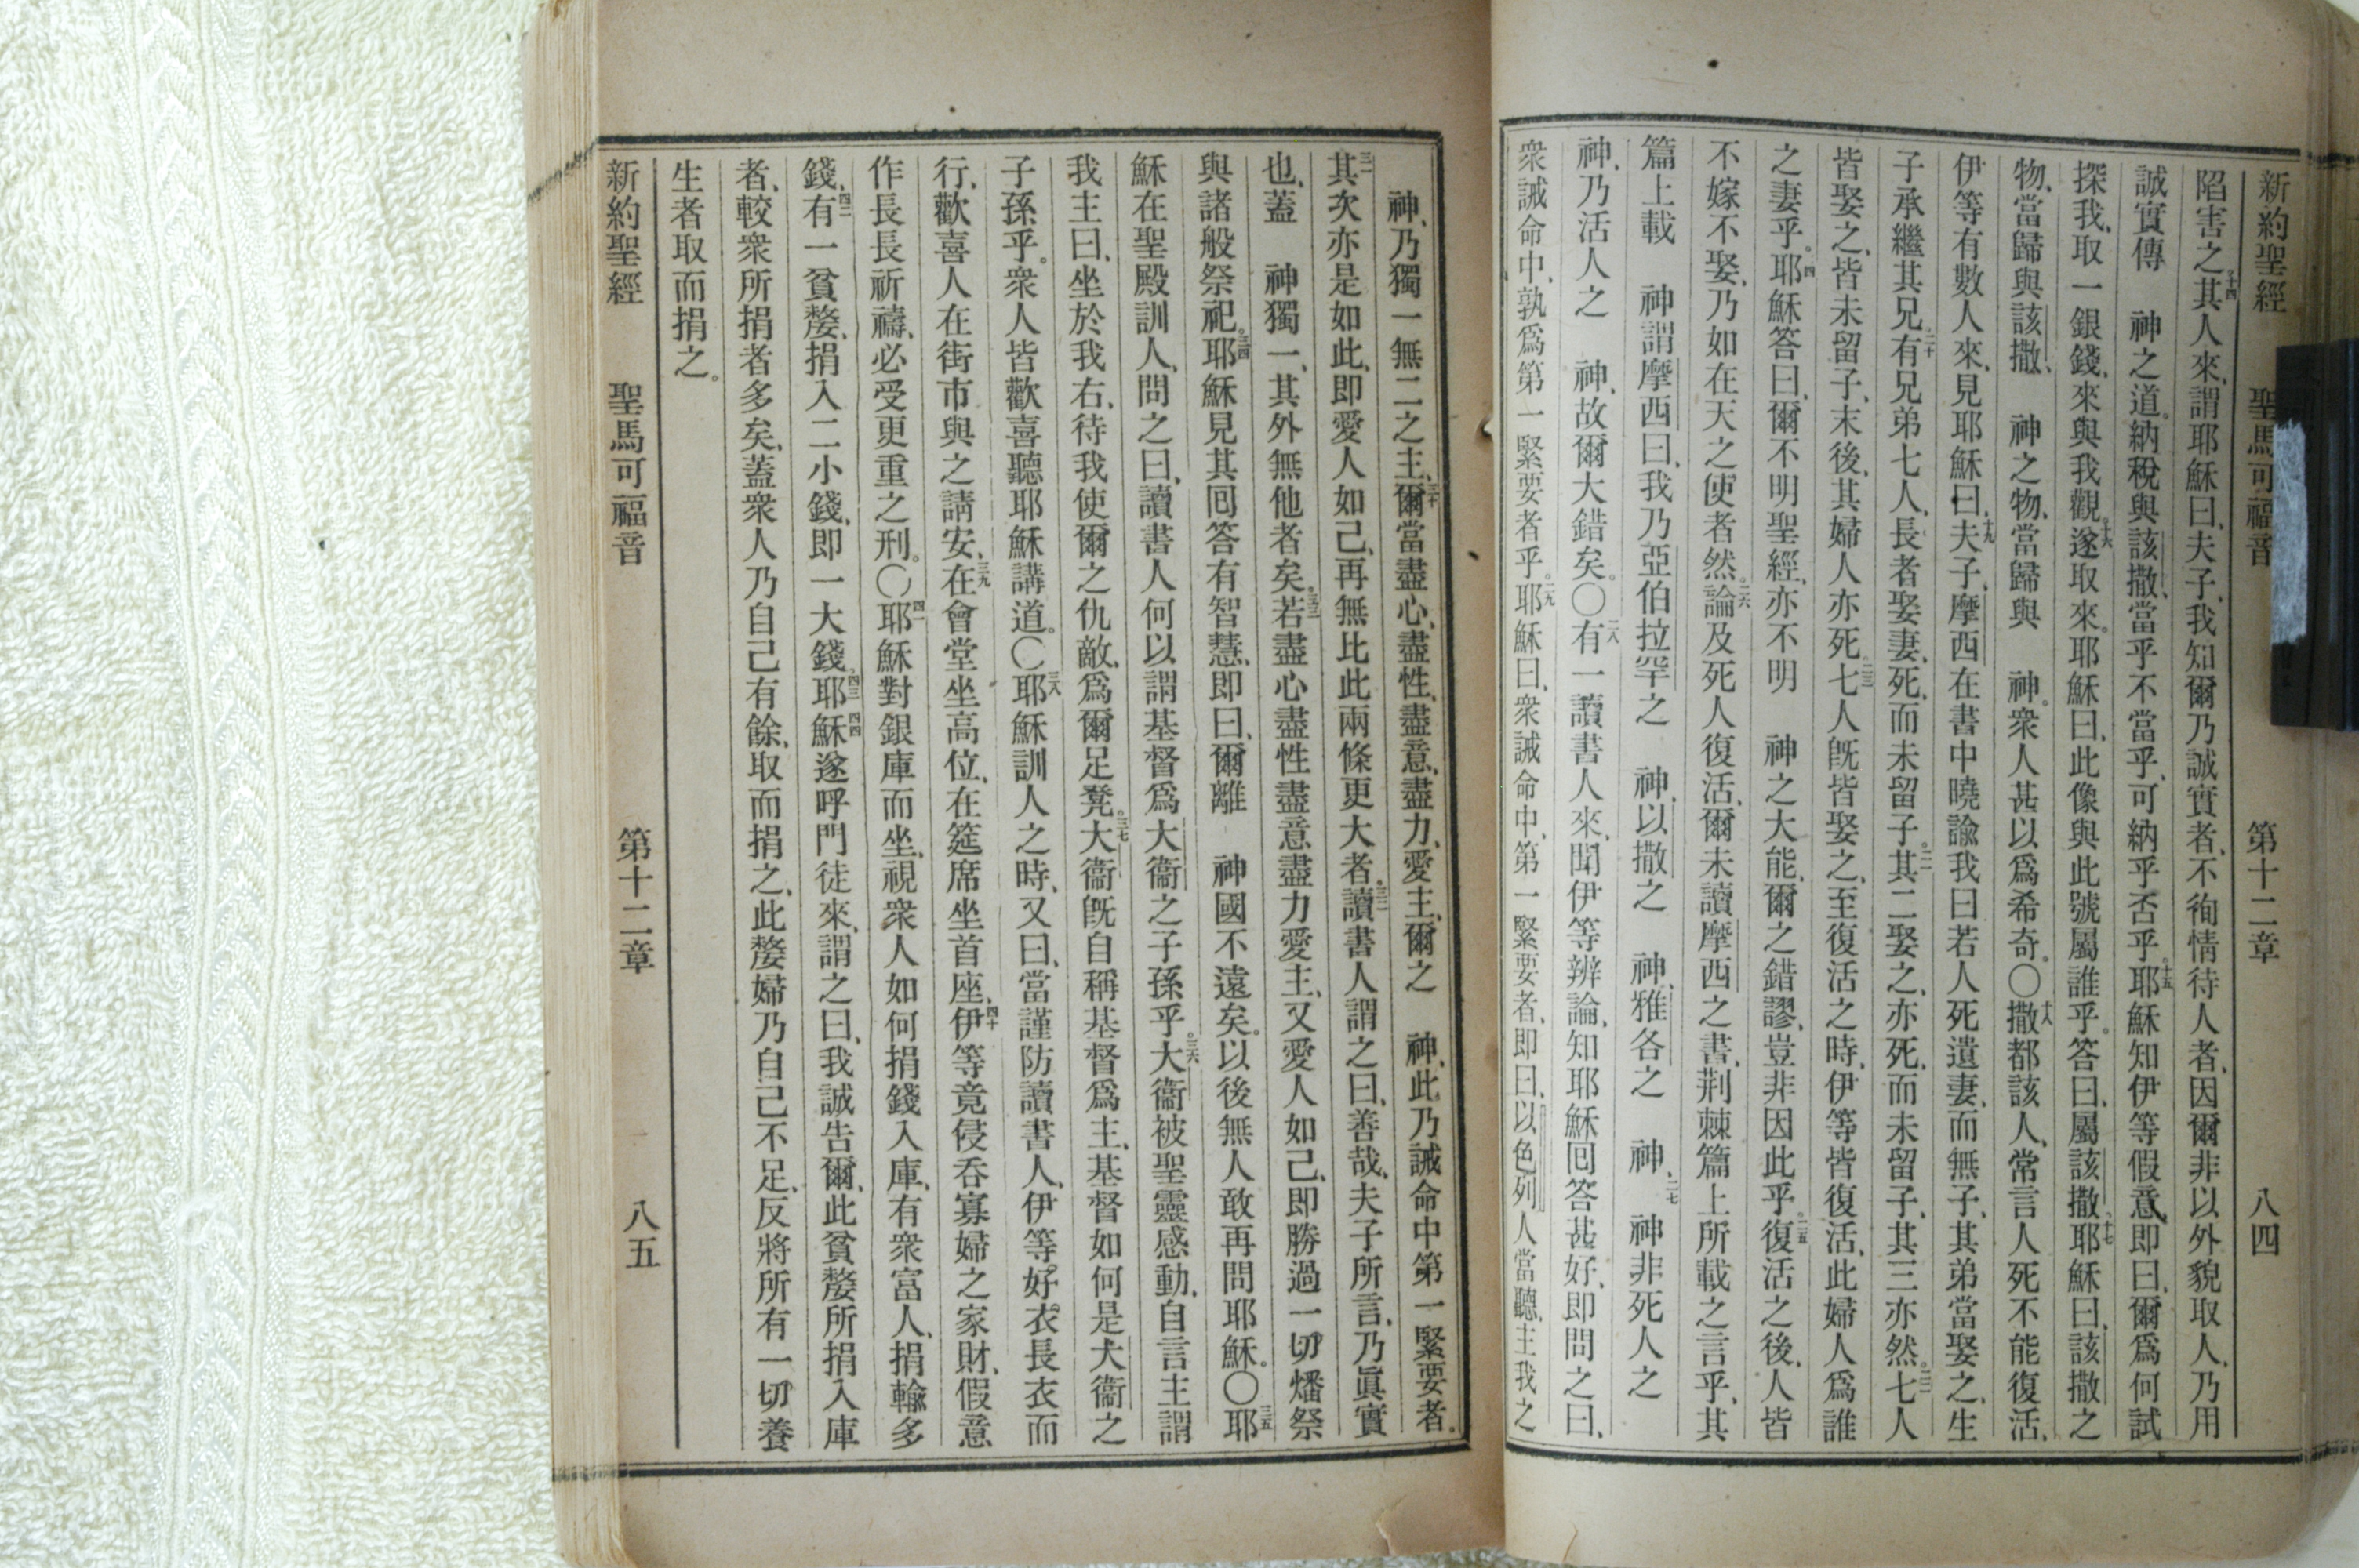 新約聖經 聖馬可福音 第十二章 八四
陷害之、十四其人來、謂耶穌曰、夫子、我知爾乃誠實者、不徇情待人者、因爾非以外貌取人、乃用
誠實傳 神之道。納稅與該撒、當乎不當乎、可納乎否乎。十五耶穌知伊等假意、即曰、爾爲何試
探我、取一銀錢、來與我觀。十六遂取來。耶穌曰、此像與此號屬誰乎。答曰、屬該撒、十七耶穌曰、該撒之
物、當歸與該撒、 神之物、當歸與 神。衆人甚以爲希奇。〇十八撒都該人、常言人死不能復活、
伊等有數人來、見耶穌曰、十九夫子、摩西在書中曉諭我曰、若人死遺妻、而無子、其弟當娶之、生
子承繼其兄、二十有兄弟七人、長者娶妻、死、而未留子。二一其二娶之、亦死、而未留子、其三亦然。二二七人
皆娶之、皆未留子、末後、其婦人亦死。二三七人旣皆娶之、至復活之時、伊等皆復活、此婦人爲誰
之妻乎。二四耶穌答曰、爾不明聖經、亦不明 神之大能、爾之錯謬、豈非因此乎。二五復活之後、人皆
不嫁不娶、乃如在天之使者然。二六論及死人復活、爾未讀摩西之書、荆棘篇上所載之言乎、其
篇上載 神謂摩西曰、我乃亞伯拉罕之 神、以撒之 神、雅各之 神、二七 神非死人之
神、乃活人之 神、故爾大錯矣。〇二八有一讀書人來、聞伊等辨論、知耶穌囘答甚好、即問之曰、
衆誡命中、孰爲第一緊要者乎。二九耶穌曰、衆誡命中、第一緊要者、即曰、以色列人當聽、主我之
神、乃獨一無二之主、三十爾當盡心、盡性、盡意、盡力、愛主、爾之 神、此乃誡命中第一緊要者。
三一其次亦是如此、即愛人如己、再無比此兩條更大者。三二讀書人謂之曰、善哉、夫子所言、乃眞實
也、蓋 神獨一、其外無他者矣。三三若盡心盡性盡意盡力愛主、又愛人如己、即勝過一切燔祭
與諸般祭祀。三四耶穌見其囘答有智慧、即曰、爾離 神國不遠矣。以後無人敢再問耶穌。〇三五耶
穌在聖殿訓人、問之曰、讀書人何以謂基督爲大衞之子孫乎。三六大衞被聖靈感動、自言主謂
我主曰、坐於我右、待我使爾之仇敵、爲爾足凳。三七大衞旣自稱基督爲主、基督如何是大衞之
子孫乎。衆人皆歡喜聽耶穌講道。〇三八耶穌訓人之時、又曰、當謹防讀書人、伊等好衣長衣而
行、歡喜人在街市與之請安、三九在會堂坐高位、在筵席坐首座、四十伊等竟侵吞寡婦之家財、假意
作長長祈禱、必受更重之刑。〇四一耶穌對銀庫而坐、視衆人如何捐錢入庫、有衆富人、捐輸多
錢、四二有一貧嫠、捐入二小錢、即一大錢。四三耶穌四四遂呼門徒來、謂之曰、我誠告爾、此貧嫠所捐入庫
者、較衆所捐者多矣、蓋衆人乃自己有餘、取而捐之、此嫠婦乃自己不足、反將所有一切養
生者取而捐之。
新約聖經 聖馬可福音 第十二章 八五